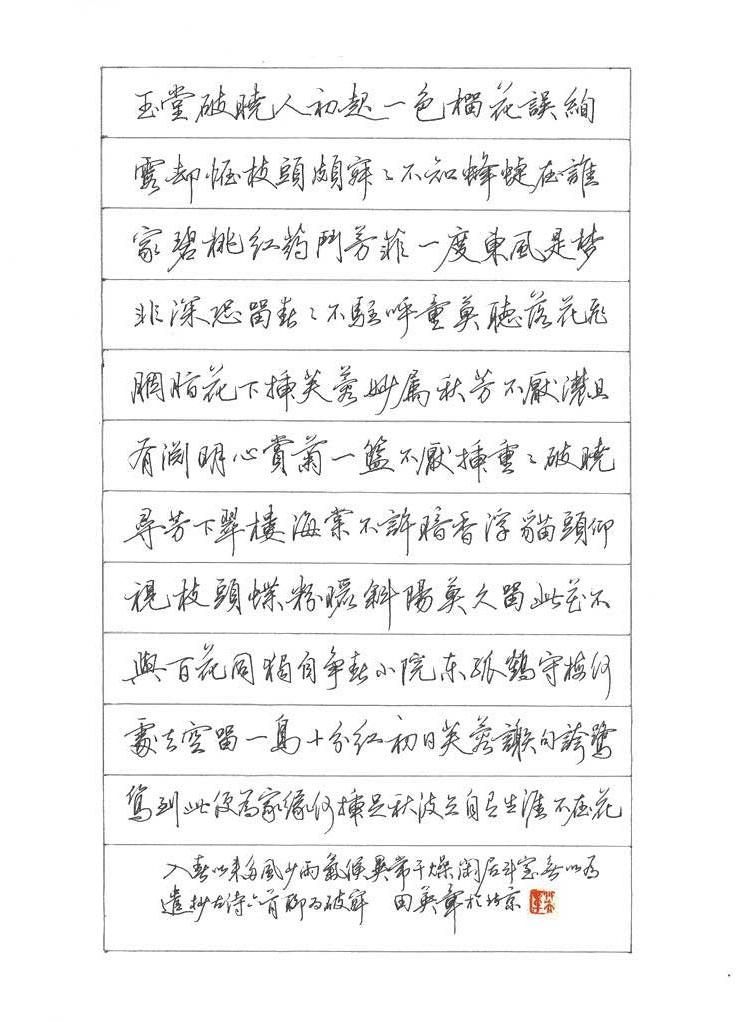 玉堂破曉人初起一色榴花誤絢
霞却怪枝頭頗寂〻不知蜂蝶在誰
家碧桃紅药鬥芳菲一度東風是梦
非深恐留春〻不駐呼童莫聽落花飛
胭脂花下插芙蓉妙屬秋芳不厭濃且
有渊明心賞菊一籃不厭插重〻破曉
尋芳下翠樓海棠不許暗香浮貓頭仰
視枝頭蝶粉暖斜陽莫久留此花不
與百花同獨自争春小院东孤鶴守梅何
處去空留一鳥十分红初日芙蓉謝句誇鷺
鸶到此便為家缘何插足秋波立自古生涯不在花
入春以来多風少雨氣候異常干燥闲居斗室無以為
遣抄古诗六首聊为破寂 田英章於北京